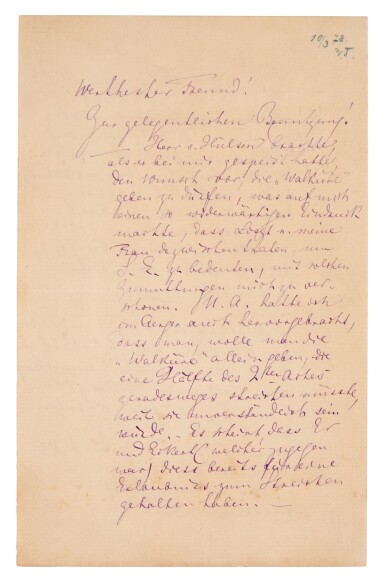 10/3 78.
Werthester Freund!
Zur gelegentlichen Benützung!
Herr v. Hülsen brachte,
als er bei mir gespeist hatte,
den Wunsch vor, die „Walküre"
geben zu dürfen, was auf mich
einen so widerwärtigen Eindruck
machte, dass Liszt u. meine
Frau dazwischen traten, um
S. E. zu bedeuten, mit solchen
Zumuthungen mich zu ver-
schonen. U. A. hatte ich
im Aerger auch hervorgebracht,
dass man, wolle man die
„Walküre" allein geben, die
eine Hälfte des 2ten Actes
geradesweges streichen müsste,
weil sie unverständlich sein
würde. – Es scheint dass Er
und Eckert (welcher zugegen
war) diess bereits für eine
Erlaubniss zum Streichen
gehalten haben. —